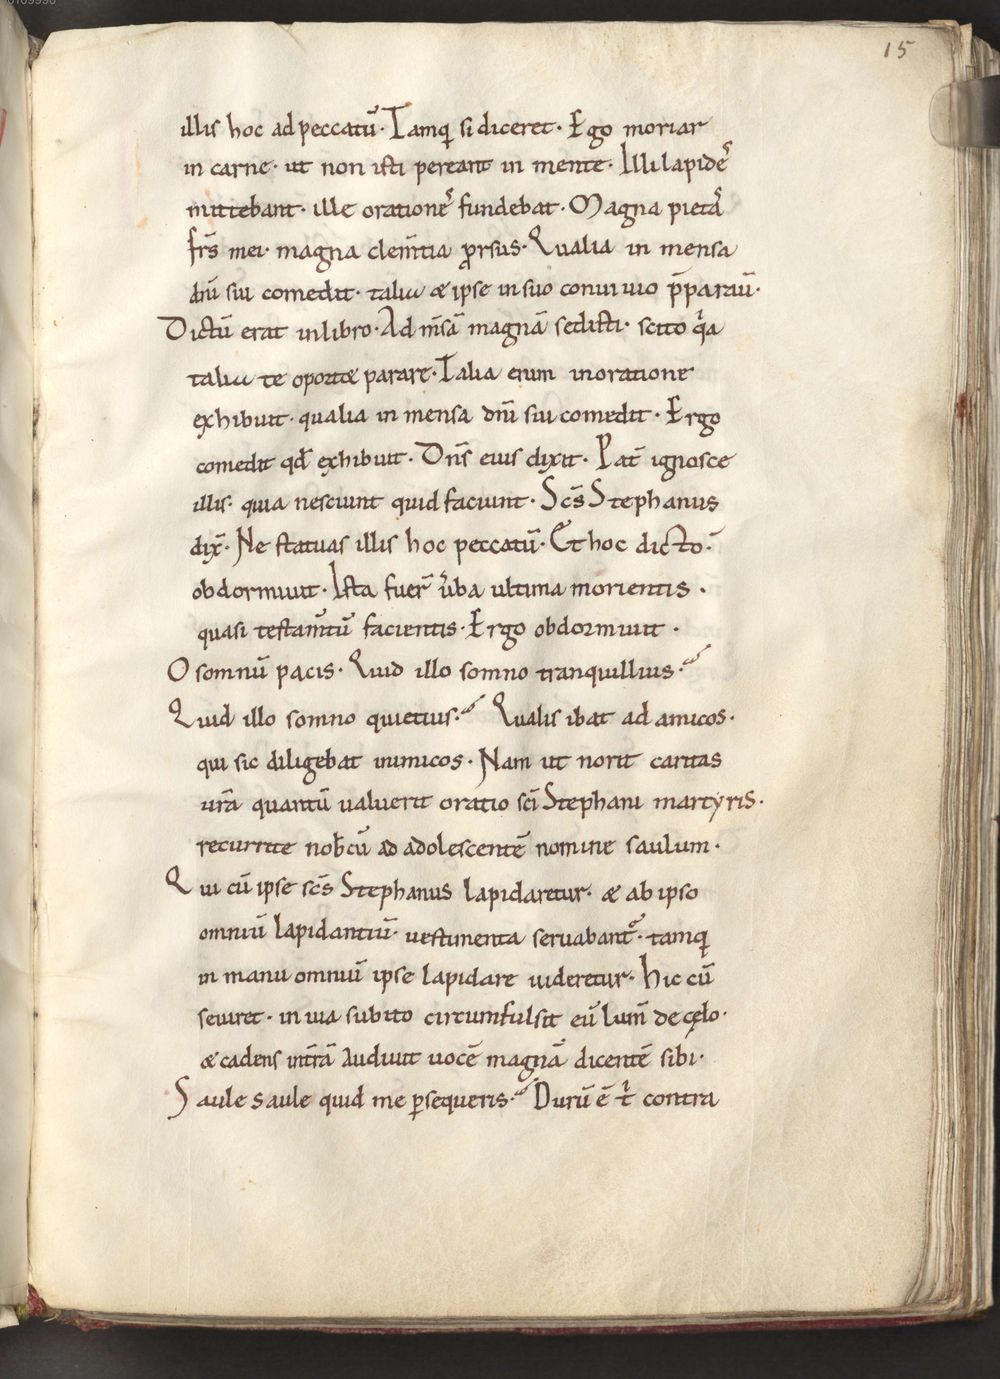 15
illis hoc ad peccatū· Tamq; si diceret· Ego moriar
in carne· ut non isti pereant in mente· Illi lapidē
mittebant· ille orationē fundebat· Magna pietā
fr̄s mei· magna clem̄tia ꝓrsus· Qualia in mensa
dn̄i sui comedit· talia & ipse in suo conuiuio p̄parauit̄·
Dictū erat in libro· Ad m̄sā magnā sedisti· scito qa
talia te oport& parare· Talia enim in oratione
exhibuit· qualia in mensa dn̄i sui comedit· Ergo
comedit qd̄ exhibuit· Dn̄s eius dixit· Pat̄ ignosce
illis· quia nesciunt quid faciunt· Sc̄s Stephanus
dix̄· Ne statuas illis hoc peccatū· Et hoc dicto·
obdormiuit· Ista fuer̄ ūba ultima morientis·
quasi testam̄tū facientis· Ergo obdormiuit·
O somnū pacis· Quid illo somno tranquillius·
Quid illo somno quietius· Qualis ibat ad amicos·
qui sic diligebat inimicos· Nam ut norit caritas
ur̄a quantū ualuerit oratio sc̄i Stephani martyris·
recurrite nob̄cū ad adolescentē nomine saulum·
Qui cū ipse sc̄s Stephanus lapidaretur· & ab ipso
omniū lapidantiū· uestimenta seruabant̄· tamq;
in manu omniū ipse lapidare uideretur· hic cū
seuiret· in uia subito circumfulsit eū lum̄ de cęlo·
& cadens int̄rā audiuit uocē magnā dicentē sibi·
Saule saule quid me ꝑsequeris· Durū ē t contra